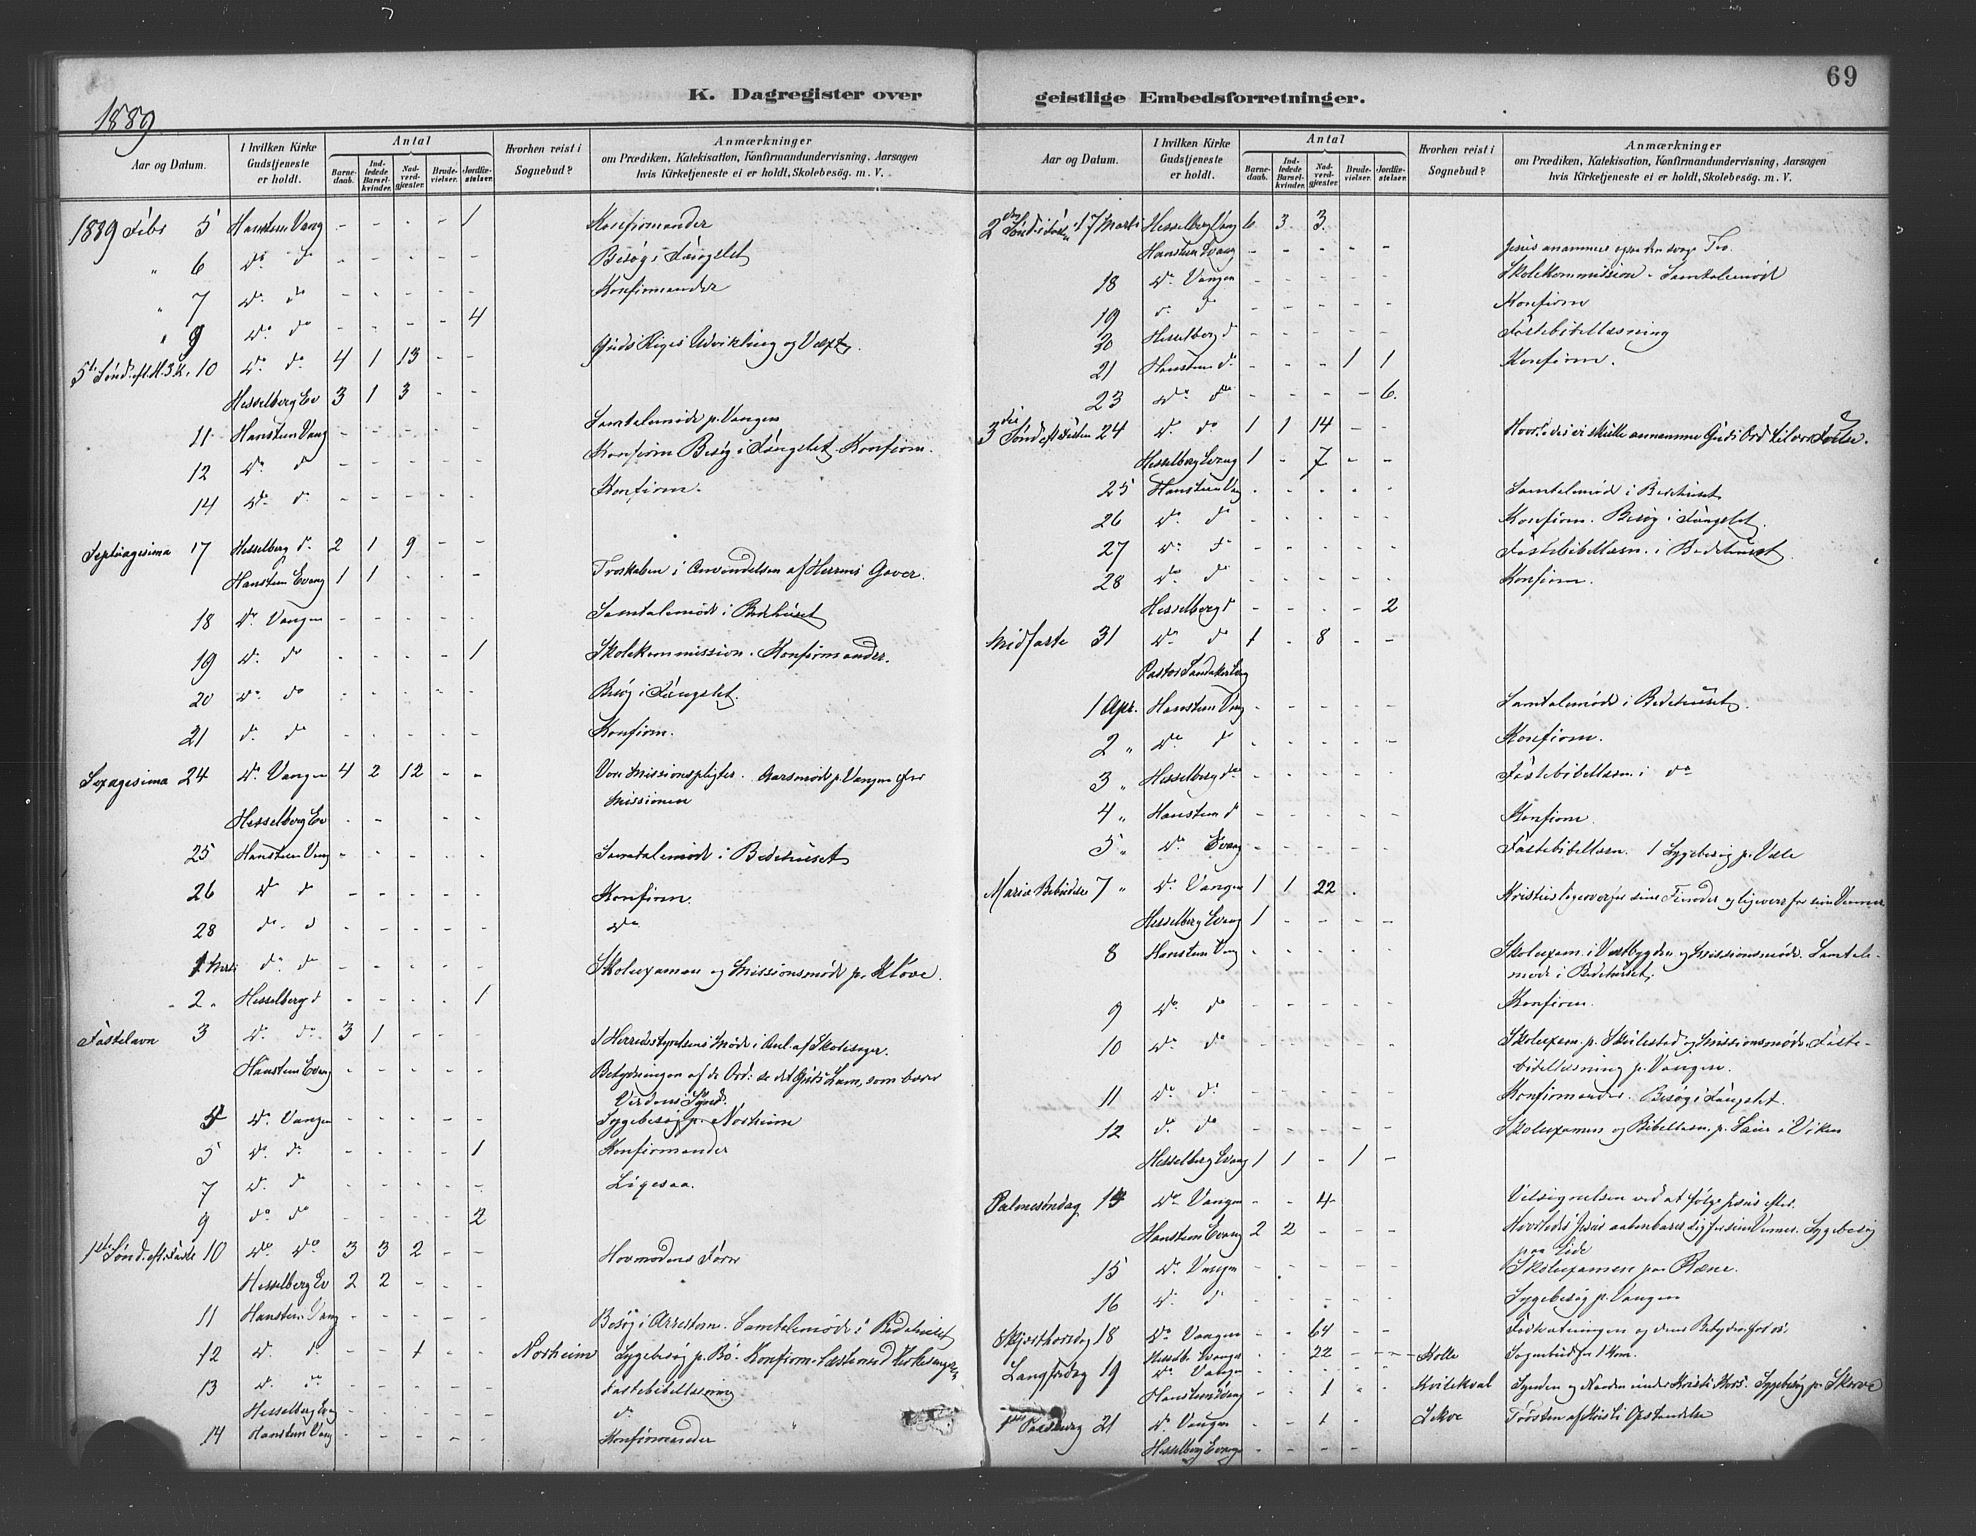 69
1889
K. Dagregister over geistlige Embedsforretninger.
Aar og Datum. I hvilken Kirke Gudstjeneste er holdt. Antal Barnedaab. Indledede Barselkvinder. Nadverdgjæster. Brudevielser. Jordfæstelser. Hvorhen reist i Sognebud? Anmærkninger om Prædiken, Katekisation, Konfirmandundervisning, Aarsagen hvis Kirketjeneste ei er holdt, Skolebesøg. m. V.
1889 Febr 5 Hansteen Vang - - - - 1 Konfirmander
" 6 do do - - - - - Besøg i Fængslet
" 7 do do - - - - - Konfirmander
" 9 do do - - - - 4
5te Sønd. eft. H. 3 K. 10 do do 4 1 13 - - Guds Riges Udvikling og Væxt.
Hesselberg Ev 3 1 3 - -
11 Hansteen Vang - - - - - Samtalemøde p. Vangen
12 do do - - - - - Konfirm Besøg i Fængslet. Konfirm.
14 do do - - - - - Konfirm.
Septuagesima 17 Hesselberg do 2 1 9 - -
Hansteen Evang 1 1 - - - Troskaben i Anvendelsen af Herrens Gaver.
18 do Vangen - - - - - Samtalemøde i Bedehuset
19 do do - - - - 1 Skolekommission. Konfirmander.
20 do do - - - - - Besøg i Fængslet.
21 do do - - - - - Konfirm.
Sexagesima 24 do Vangen 4 2 12 - - Vore Missionspligter. Aarsmøde p. Vangen for
Missionen
Hesselberg Ev - - - - -
25 Hansteen Vang - - - - - Samtalemøde i Bedehuset
26 do do - - - - - Konfirm.
28 do do - - - - - do
1 Marts do do - - - - - Skoleexamen og Missionsmøde p. Kløve.
" 2 " Hesselberg d - - - - 1
Fastelavn 3 do do 3 1 - - - Herredsstyrelsens Møde i Anl. af Skolesager.
Hansteen Evang - - - - - Betydningen af de Ord: se det Guds Lam, som bærer
Verdens Synd.
4 do Vangen - - - - - Sygebesøg p. Norheim
5 do do - - - - 1 Konfirmander
7 do do - - - - - Ligesaa.
9 do do - - - - 2
1ste Sønd. eft. Faste 10 do do 3 3 2 - - Hovmodens Farer
Hesselberg Ev 2 2 - - -
11 Hansteen Vang - - - - - Besøg i Arresten. Samtalemøde i Bedehuset
12 do do - - 1 - - Norheim Sygebesøg p. Bø. Konfirm.
13 do do - - - - - Fastebibellæsning
Hesselberg Evang - - - - - do "
14 Hansteen Vang - - - - - Konfirmander
Aar og Datum. I hvilken Kirke Gudstjeneste er holdt. Antal Barnedaab. Indledede Barselkvinder. Nadverdgjæster. Brudevielser. Jordfæstelser. Hvorhen reist i Sognebud? Anmærkninger om Prædiken, Katekisation, Konfirmandundervisning, Aarsagen hvis Kirketjeneste ei er holdt, Skolebesøg. m. V.
2den Sønd i Fasten 17 Marts Hesselberg Vang 6 3 3
Hansteen Evang - - - - - Jesus anammer ogsaa den svage Tro.
18 do Vangen - - - - - Skolekommission - Samtalemøde
19 do do - - - - - Konfirm
20 Hesselberg d - - - - - Fastebibellæsning
21 Hansteen do - - - 1 1 Konfirm.
23 do do - - - - 6.
3die Sønd eft Fasten 24 do do 1 1 14 - - Hvorledes vi skulle anamme Guds Ord til vor Frelse.
Hesselberg Evang 1 - 7 - -
25 Hansteen Vang - - - - - Samtalemøde i Bedehuset
26 do do - - - - - Konfirm. Besøg i Fængslet.
27 do do - - - - - Fastebibellæsn. i Bedehuset.
28 do do - - - - - Konfirm.
Hesselberg d - - - - 2
Midfaste 31 do do 1 - 8 - -
Pastor Sandaker Evang
1 Apr. Hansteen Vang - - - - - Samtalemøde i Bedehuset.
2 " do do - - - - - Konfirm.
3 " Hesselberg do - - - - - Fastebibellæsn. i do
4 " Hansteen d - - - - - Konfirm.
5 " do Evang - - - - - Fastebibellæsn. 1 Sygebesøg p.
Mariæ Bebudelse 7 " do Vangen 1 1 22 - Kristus ligeoverfor sine Fiender og ligeoverfor sine Venner.
Hesselberg Evang 1 - - - -
8 Hansteen Vang - - - - - Skoleexam. i Vestbygden og Missionsmøde. Samtale-
møde i Bedehuset.
9 do do - - - - - Konfirm.
10 do do - - - - - Skoleexam. p. Skilestad og Missionsmøde. Faste-
bibellæsning p. Vangen.
11 do do - - - - - Konfirmander. Besøg i Fængslet.
12 do do - - - - - Skoleexamen og Bibellæsn. p.
Hesselberg Evang 1 1 - 1 -
Palmesøndag 14 do Vangen - - 4 Velsignelsen ved at følge Jesus efter.
Hansteen Evang 2 2 - - - Hvorledes Jesus aabenbarer sig for sine Venner. Sygebesøg
paa Eide
15 do Vangen - - - - - Skoleexamen paa Ræne.
16 do do - - - - - Sygebesøg p. Vangen
Skjærthorsdag 18 do Vangen - - 64 - - Fodvaskningen og dens Betydning for os.
Hesselb. Evanger - - 22 - - Kolle Sognebud for 1 Kom.
Langfredag 19 do Vangen Kvilekval Synden og Naaden under Kristi Kors. Sygebesøg p. Skerve
Hansteen Evang - - 1 - -
1ste Paaskedag 21 do Vangen - - 1 - Lekve Trøsten af Kristi Opstandelse
Hesselberg Evanger - - - - -